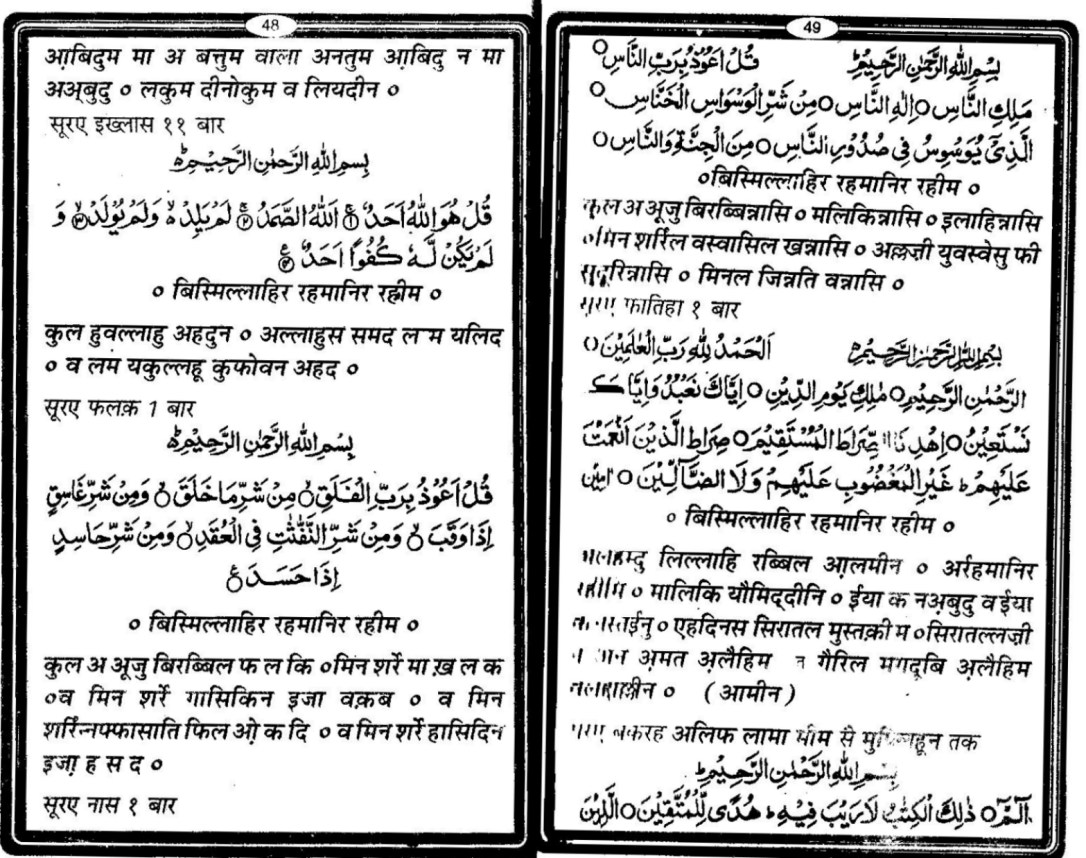 48
आ़बिदुम मा अ बत्तुम वाला अनतुम आ़बिदु न मा
अअ़्बुदु ० लकुम दीनोकुम व लियदीन ०
सूरए इख्लास ११ बार
بِسْمِ اللهِ الرَّحْمٰنِ الرَّحِيْمِ ط
قُلْ هُوَ اللهُ اَحَدٌ ۝ اَللهُ الصَّمَدُ ۝ لَمْ يَلِدْ ۙ وَلَمْ يُوْلَدْ ۝ وَ
لَمْ يَكُنْ لَّهٗ كُفُوًا اَحَدٌ ۝
० बिस्मिल्लाहिर रहमानिर रह़ीम ०
कुल हुवल्लाहु अहदुन ० अल्लाहुस समद लम यलिद
० व लम यकुल्लहू कुफोवन अहद ०
सूरए फलक़ 1 बार
بِسْمِ اللهِ الرَّحْمٰنِ الرَّحِيْمِ ط
قُلْ اَعُوْذُ بِرَبِّ الْفَلَقِ ۝ مِنْ شَرِّ مَا خَلَقَ ۝ وَمِنْ شَرِّ غَاسِقٍ
اِذَا وَقَبَ ۝ وَمِنْ شَرِّ النَّفّٰثٰتِ فِي الْعُقَدِ ۝ وَمِنْ شَرِّ حَاسِدٍ
اِذَا حَسَدَ ۝
० बिस्मिल्लाहिर रहमानिर रहीम ०
कुल अ अ़ूजु बिरब्बिल फ ल कि ०मिन शर्रे मा ख़ ल क
०व मिन शर्रे गासिकिन इजा वक़ब ० व मिन
शर्रिन्नफ्फासाति फिल ओ़ क दि ० व मिन शर्रे हासिदिन
इजा़ ह स द ०
सूरए नास १ बार
49
بِسْمِ اللهِ الرَّحْمٰنِ الرَّحِيْمِ ط قُلْ اَعُوْذُ بِرَبِّ النَّاسِ ۝
مَلِكِ النَّاسِ ۝ اِلٰهِ النَّاسِ ۝ مِنْ شَرِّ الْوَسْوَاسِ الْخَنَّاسِ ۝
الَّذِيْ يُوَسْوِسُ فِيْ صُدُوْرِ النَّاسِ ۝ مِنَ الْجِنَّةِ وَالنَّاسِ ۝
०बिस्मिल्लाहिर रहमानिर रहीम ०
कुल अ अ़ूजु बिरब्बिन्नासि ० मलिकिन्नासि ० इलाहिन्नासि
०मिन शर्रिल वस्वासिल खन्नासि ० अल्लज़ी युवस्वेसु फी
सुदूरिन्नासि ० मिनल जिन्नति वन्नासि ०
सूरए फातिहा १ बार
بِسْمِ اللهِ الرَّحْمٰنِ الرَّحِيْمِ ط اَلْحَمْدُ لِلّٰهِ رَبِّ الْعٰلَمِيْنَ ۝
الرَّحْمٰنِ الرَّحِيْمِ ۝ مٰلِكِ يَوْمِ الدِّيْنِ ۝ اِيَّاكَ نَعْبُدُ وَاِيَّاكَ
نَسْتَعِيْنُ ۝ اِهْدِنَا الصِّرَاطَ الْمُسْتَقِيْمَ ۝ صِرَاطَ الَّذِيْنَ اَنْعَمْتَ
عَلَيْهِمْ ط غَيْرِ الْمَغْضُوْبِ عَلَيْهِمْ وَلَا الضَّآلِّيْنَ ۝ اٰمِيْن
० बिस्मिल्लाहिर रहमानिर रहीम ०
अलहम्दु लिल्लाहि रब्बिल आ़लमीन ० अर्रहमानिर
रहीम ० मालिकि यौमिद्दीनि ० ईया क नअ़बुदु व ईया
०एहदिनस सिरातल मुस्तक़ीम ०सिरातल्लज़ी
अ़मत अ़लैहिम गैरिल मगदूबि अ़लैहिम
० (आमीन)
सूरए बकरह अलिफ लामा मीम से मुफ्लिहून तक
بِسْمِ اللهِ الرَّحْمٰنِ الرَّحِيْمِ ط
الٓمّٓ ۝ ذٰلِكَ الْكِتٰبُ لَا رَيْبَ فِيْهِ ۛ هُدًى لِّلْمُتَّقِيْنَ ۝ الَّذِيْنَ